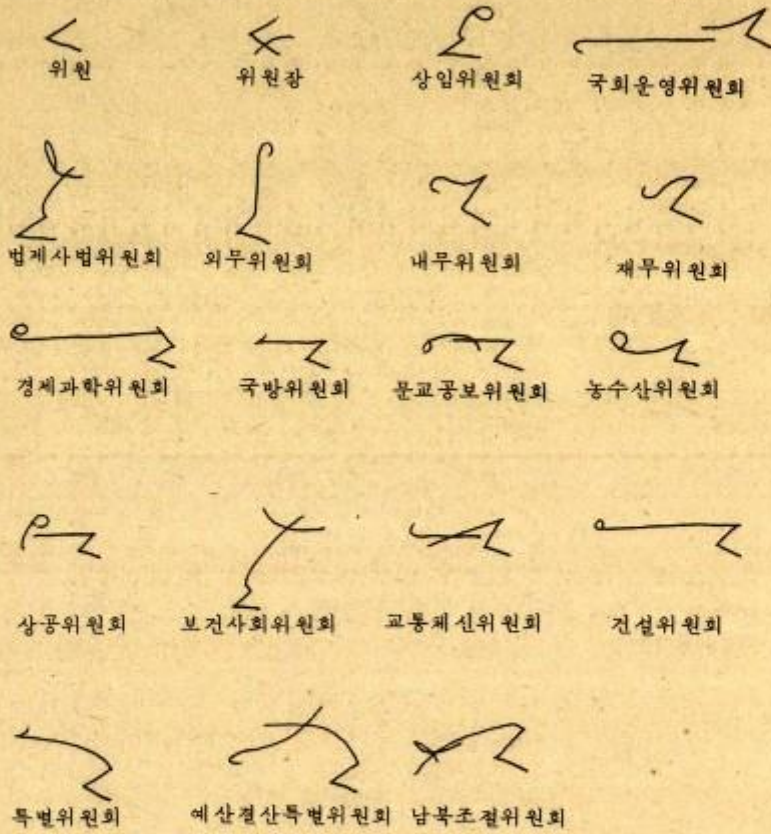 위원 위원장 상임위원회 국회운영위원회
법제사법위원회 외무위원회 내무위원회 재무위원회
경제과학위원회 국방위원회 문교공보위원회 농수산위원회
상공위원회 보건사회위원회 교통체신위원회 건설위원회
특별위원회 예산결산특별위원회 남북조절위원회